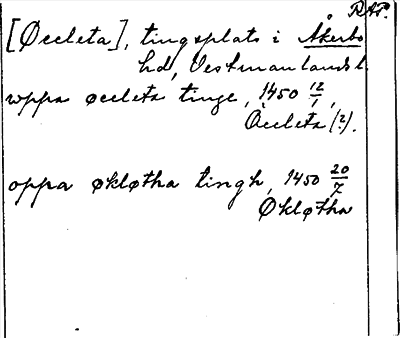 RAP.
[Øccleta], tingsplats i Åkerbo
hd, Vestmanlands l.
uppa øccleta tinge, 1450 12/1,
Öccleta (?).
oppa økløtha tingh, 1450 20/7
Økløtha